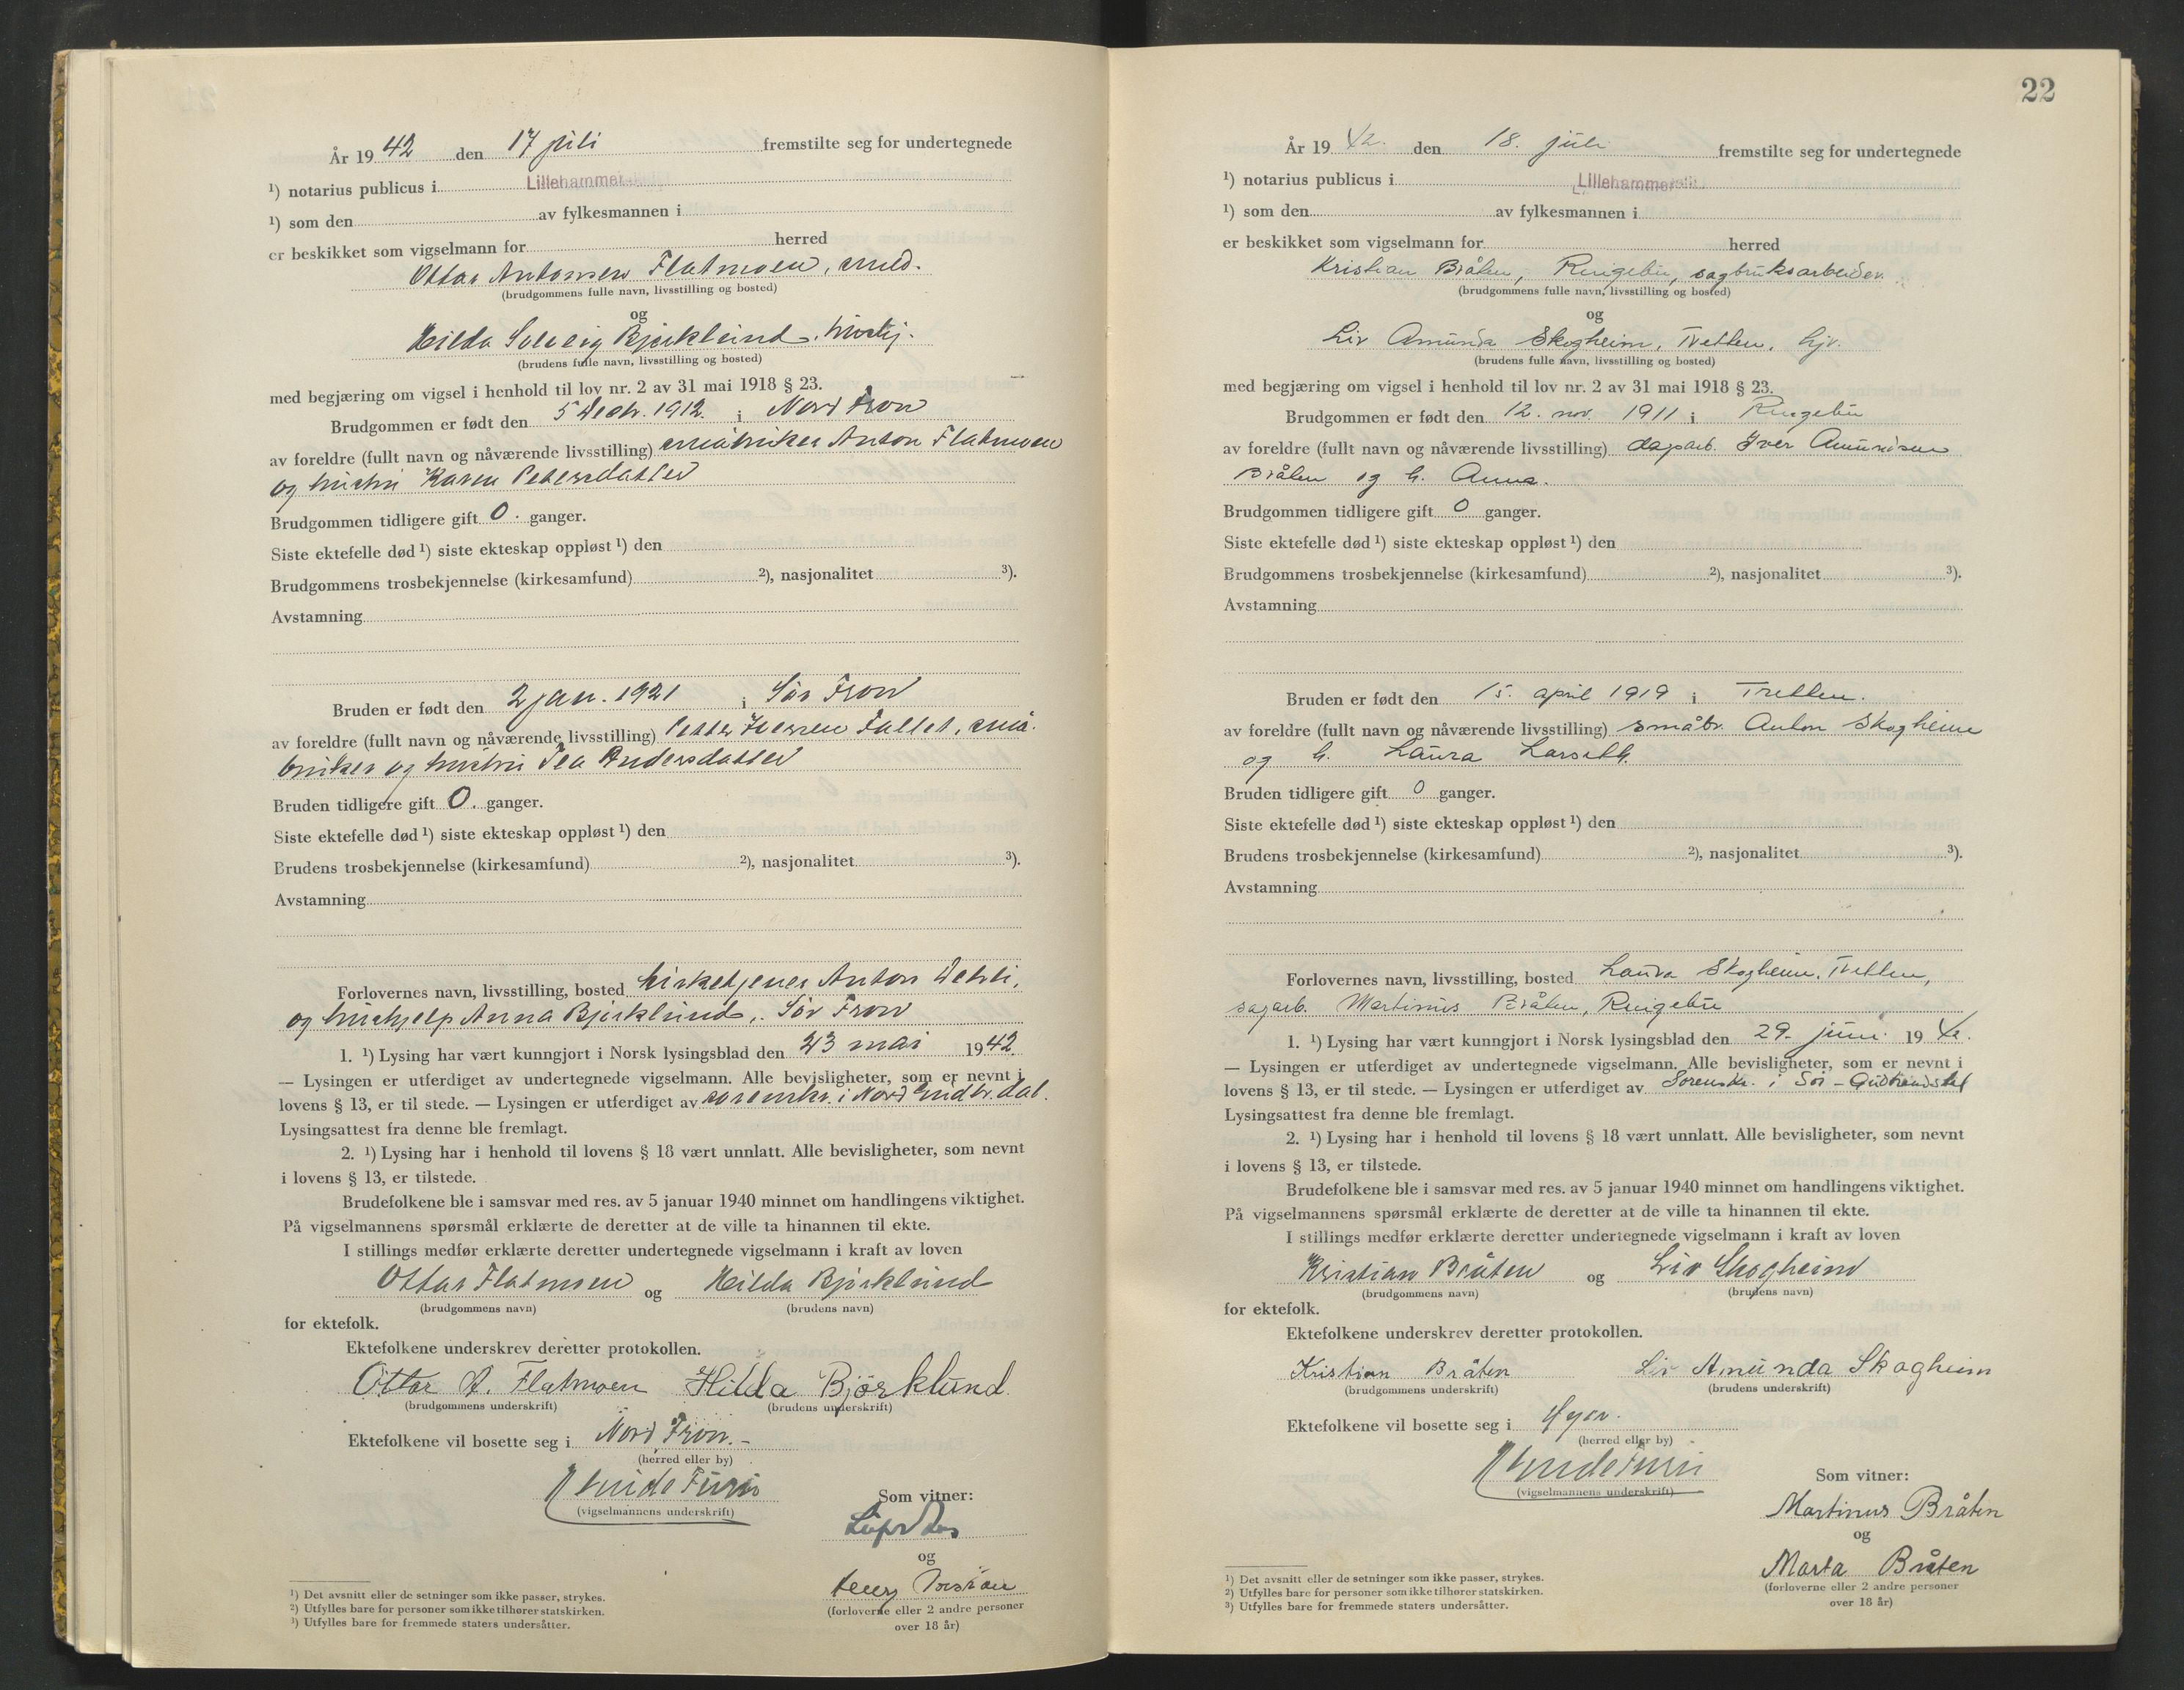 År 1942 den 17 juli fremstilte seg for undertegnede
¹) notarius publicus i Lillehammer
¹) som den av fylkesmannen i
er beskikket som vigselmann for herred
Ottar Antonsen Flatmoen, smed.
(brudgommens fulle navn, livsstilling og bosted)
og
Hilda Solveig Bjørklund, hushj.
(brudens fulle navn, livsstilling og bosted)
med begjæring om vigsel i henhold til lov nr. 2 av 31 mai 1918 § 23.
Brudgommen er født den 5 desbr. 1912. i Nord Fron
av foreldre (fullt navn og nåværende livsstilling) småbruker Anton Flatmoen
og hustru Karen Pedersdatter
Brudgommen tidligere gift 0. ganger.
Siste ektefelle død ¹) siste ekteskap oppløst ¹) den
Brudgommens trosbekjennelse (kirkesamfund) ²), nasjonalitet ³).
Avstamning
Bruden er født den 2 jan. 1921 i Sør Fron
av foreldre (fullt navn og nåværende livsstilling) Petter Iversen Fallet, små-
bruker og hustru Tea Andersdatter
Bruden tidligere gift 0. ganger.
Siste ektefelle død ¹) siste ekteskap oppløst ¹) den
Brudens trosbekjennelse (kirkesamfund) ²), nasjonalitet ³).
Avstamning
Forlovernes navn, livsstilling, bosted kirketjener Anton Dehli,
og hushjelp Anna Bjørklund, Sør Fron
1. ¹) Lysing har vært kunngjort i Norsk lysingsblad den 23 mai 1942.
— Lysingen er utferdiget av undertegnede vigselmann. Alle bevisligheter, som er nevnt i
lovens § 13, er til stede. — Lysingen er utferdiget av sorenskr. i Nord Gudbr.dal.
Lysingsattest fra denne ble fremlagt.
2. ¹) Lysing har i henhold til lovens § 18 vært unnlatt. Alle bevisligheter, som nevnt
i lovens § 13, er tilstede.
Brudefolkene ble i samsvar med res. av 5 januar 1940 minnet om handlingens viktighet.
På vigselmannens spørsmål erklærte de deretter at de ville ta hinannen til ekte.
I stillings medfør erklærte deretter undertegnede vigselmann i kraft av loven
Ottar Flatmoen og Hilda Bjørklund
(brudgommens navn) (brudens navn)
for ektefolk.
Ektefolkene underskrev deretter protokollen.
Ottar A. Flatmoen Hilda Björklund
(brudgommens underskrift) (brudens underskrift)
Ektefolkene vil bosette seg i Nord Fron. -
(herred eller by)
(vigselmannens underskrift)
Som vitner:
og
(forloverne eller 2 andre personer
over 18 år)
¹) Det avsnitt eller de setninger som ikke passer, strykes.
²) Utfylles bare for personer som ikke tilhører statskirken.
³) Utfylles bare for fremmede staters undersåtter.
22
År 1942. den 18. juli fremstilte seg for undertegnede
¹) notarius publicus i Lillehammer
¹) som den av fylkesmannen i
er beskikket som vigselmann for herred
Kristian Bråten, Ringebu, sagbruksarbeider.
(brudgommens fulle navn, livsstilling og bosted)
og
Liv Amunda Skogheim, Tretten, hj.
(brudens fulle navn, livsstilling og bosted)
med begjæring om vigsel i henhold til lov nr. 2 av 31 mai 1918 § 23.
Brudgommen er født den 12. nov. 1911 i Ringebu
av foreldre (fullt navn og nåværende livsstilling) dagarb. Iver Amundsen
Bråten og h. Anna.
Brudgommen tidligere gift 0 ganger.
Siste ektefelle død ¹) siste ekteskap oppløst ¹) den
Brudgommens trosbekjennelse (kirkesamfund) ²), nasjonalitet ³).
Avstamning
Bruden er født den 15. april 1919 i Tretten.
av foreldre (fullt navn og nåværende livsstilling) småbr. Anton Skogheim
og h. Laura Larsdtt.
Bruden tidligere gift 0 ganger.
Siste ektefelle død ¹) siste ekteskap oppløst ¹) den
Brudens trosbekjennelse (kirkesamfund) ²), nasjonalitet ³).
Avstamning
Forlovernes navn, livsstilling, bosted Laura Skogheim, Tretten,
sagarb. Martinus Bråten, Ringebu
1. ¹) Lysing har vært kunngjort i Norsk lysingsblad den 29. juni 1942.
— Lysingen er utferdiget av undertegnede vigselmann. Alle bevisligheter, som er nevnt i
lovens § 13, er til stede. — Lysingen er utferdiget av Sorenskr. i Sør-Gudbrandsdal
Lysingsattest fra denne ble fremlagt.
2. ¹) Lysing har i henhold til lovens § 18 vært unnlatt. Alle bevisligheter, som nevnt
i lovens § 13, er tilstede.
Brudefolkene ble i samsvar med res. av 5 januar 1940 minnet om handlingens viktighet.
På vigselmannens spørsmål erklærte de deretter at de ville ta hinannen til ekte.
I stillings medfør erklærte deretter undertegnede vigselmann i kraft av loven
Kristian Bråten og Liv Skogheim
(brudgommens navn) (brudens navn)
for ektefolk.
Ektefolkene underskrev deretter protokollen.
Kristian Bråten Liv Amunda Skogheim
(brudgommens underskrift) (brudens underskrift)
Ektefolkene vil bosette seg i Øyer.
(herred eller by)
(vigselmannens underskrift)
Som vitner:
Martinus Bråten
og
Marta Bråten
(forloverne eller 2 andre personer
over 18 år)
¹) Det avsnitt eller de setninger som ikke passer, strykes.
²) Utfylles bare for personer som ikke tilhører statskirken.
³) Utfylles bare for fremmede staters undersåtter.